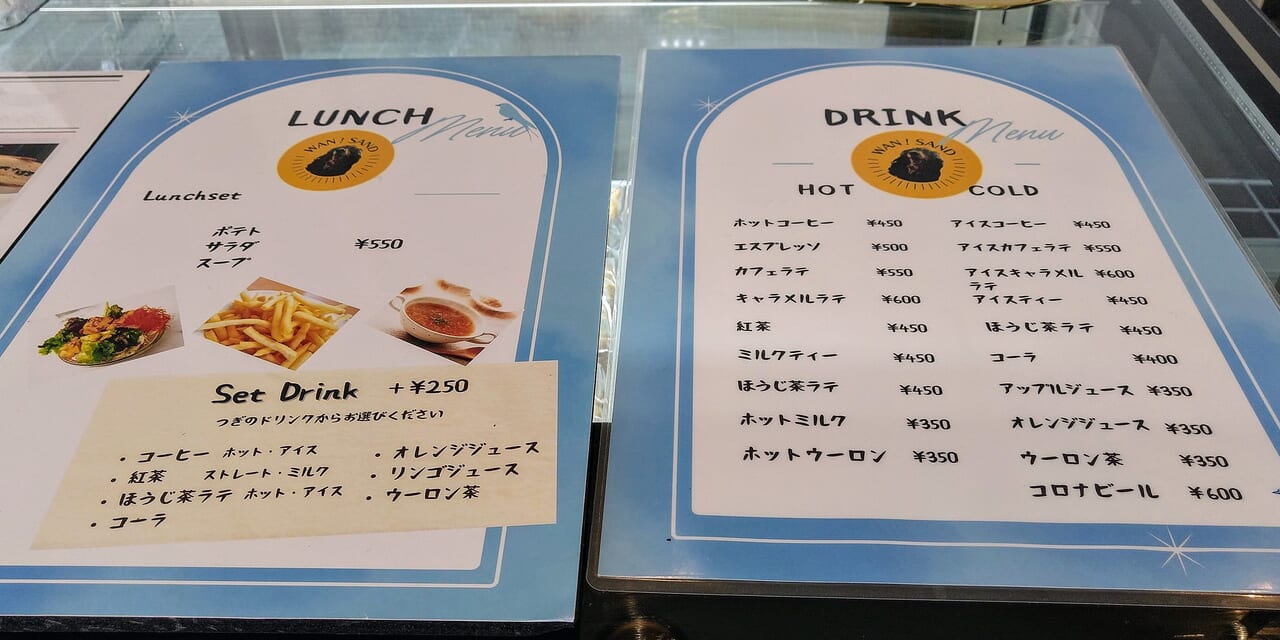 LUNCH
Menu
WAN! SAND
Lunchset
ポテト
サラダ ¥550
スープ
Set Drink +¥250
つぎのドリンクからお選びください
・コーヒー ホット・アイス
・紅茶 ストレート・ミルク
・ほうじ茶ラテ ホット・アイス
・コーラ
・オレンジジュース
・リンゴジュース
・ウーロン茶
DRINK
Menu
WAN! SAND
HOT
ホットコーヒー ¥450
エスプレッソ ¥500
カフェラテ ¥550
キャラメルラテ ¥600
紅茶 ¥450
ミルクティー ¥450
ほうじ茶ラテ ¥450
ホットミルク ¥350
ホットウーロン ¥350
COLD
アイスコーヒー ¥450
アイスカフェラテ ¥550
アイスキャラメル ¥600
ラテ
アイスティー ¥450
ほうじ茶ラテ ¥450
コーラ ¥400
アップルジュース ¥350
オレンジジュース ¥350
ウーロン茶 ¥350
コロナビール ¥600